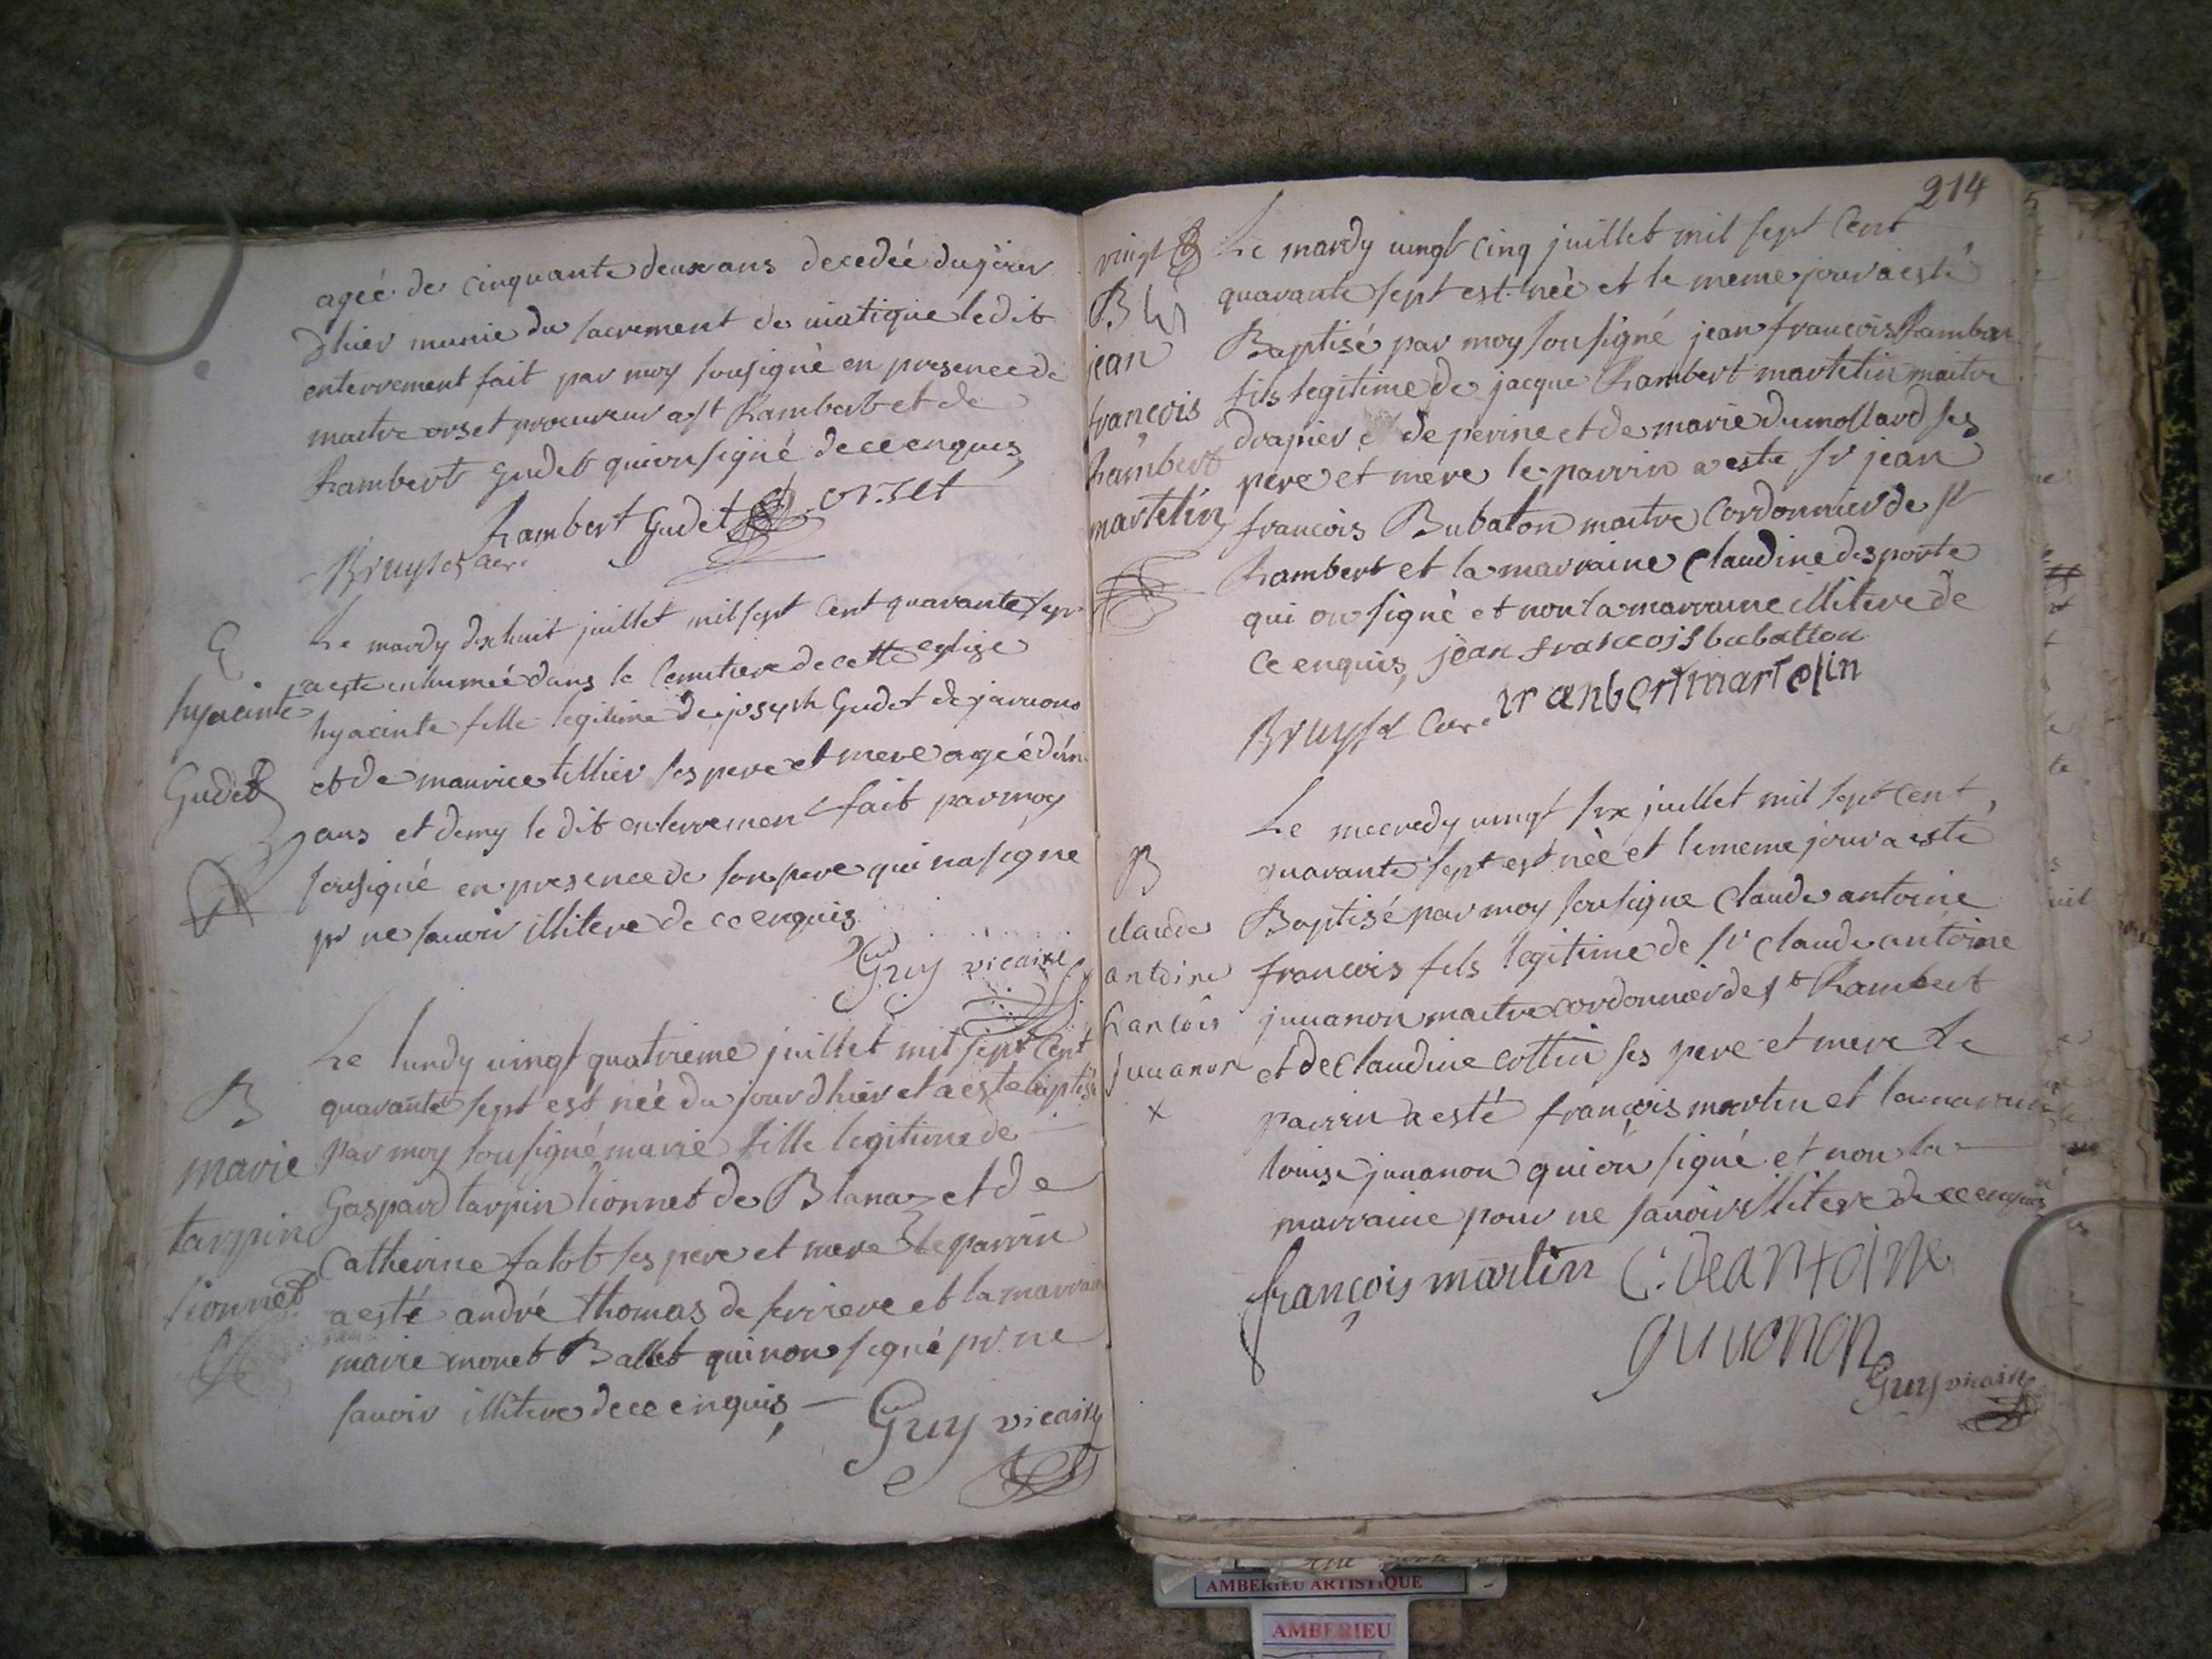 ageé de cinquante deux ans decedeé du jour
dhier munie du sacrement de viatique ledit
enterrement fait par moy sousigné en presence de
maitre orset procureur a st Rambert et de
Rambert Gudet qui ont signé de ce enquis
Rambert Gudet orset
Bruyset
E
hyacinte
Gudet
Le mardy dixhuit juillet mil sept cent quarante sept
a esté inhumeé dans le Cemitiere de cette eglise
hyacinte fille legitime de joseph Gudet de javornos
et de maurice tillier ses pere et mere ageé d'un
ans et demy le dit enterrement fait par moy
sousigné en presence de son pere qui na signé
pr ne savoir illitere de ce enquis
Guy vicaire
B
marie
tarpin
lionnet
Le lundy vingt quatrieme juillet mil sept cent
quarante sept est néé du jour dhier et a esté baptisé
par moy sousigné marie fille legitime de
Gaspard tarpin lionnet de Blanaz et de
Catherine falot ses pere et mere le parrin
a esté andré thomas de serriere et la marraine
marie monet Ballet qui non signé pr ne
savoir illitere de ce enquis
Guy vicaire
214
vingt
B
jean
françois
Rambert
martelin
Le mardy vingt cinq juillet mil sept Cent
quarante sept est néé et le meme jour a esté
Baptisé par moy sousigné jean francois Rambert
fils legitime de jacque Rambert martelin maitre
drapier de perine et de marie dumollard ses
pere et mere le parrin a esté sr jean
francois Bubaton maitre Cordonnier de st
Rambert et la marraine Claudine desporte
qui on signé et non la marraine illitere de
ce enquis, jean francois bubatton
ranbert martelin
Bruyset Cure
B
claude
antoine
francois
juuanon
x
Le mecredy vingt six juillet mil sept cent
quarante sept est néé et le meme jour a esté
Baptisé par moy sousigné Claude antoine
francois fils legitime de sr claude antoine
juuanon maitre cordonnier de st Rambert
et de Claudine cottin ses pere et mere le
parrin a esté françois martin et la marraine
louise juuanon qui on signé et non la
marraine pour ne savoir illitere de ce enquis
françois martin C: deantoine
guuanon
Guy vicaire
AMBERIEU ARTISTIQUE
AMBERIEU